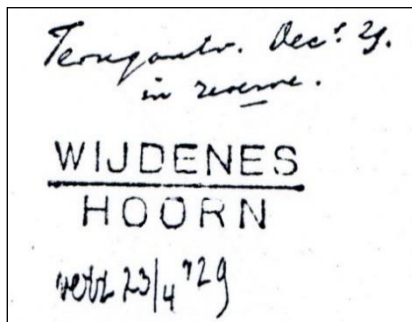 Terugontv. Dec. 29.
in reserve.
WIJDENES
HOORN
verz 23/4 '29